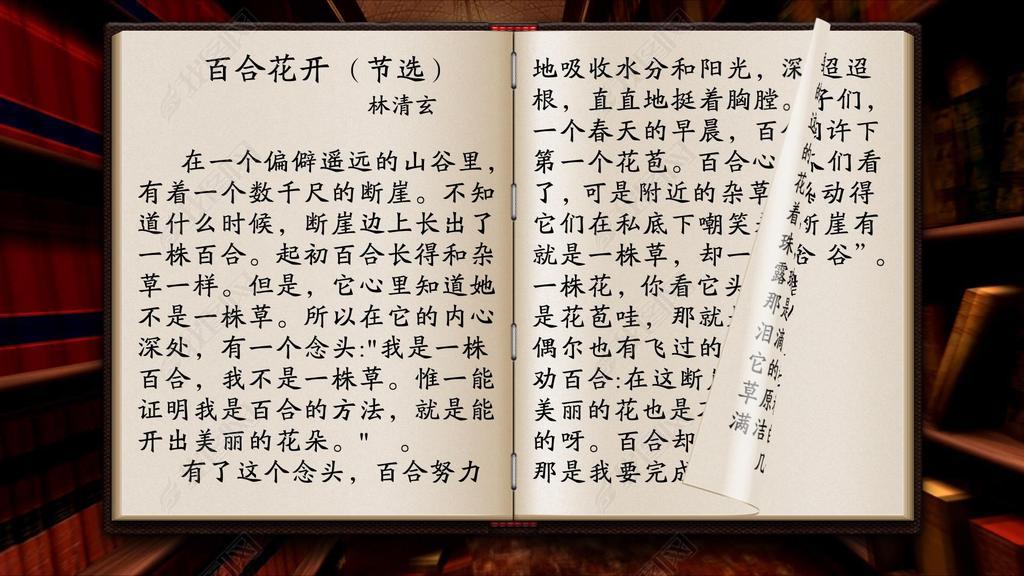 百合花开（节选）
林清玄
在一个偏僻遥远的山谷里，
有着一个数千尺的断崖。不知
道什么时候，断崖边上长出了
一株百合。起初百合长得和杂
草一样。但是，它心里知道她
不是一株草。所以在它的内心
深处，有一个念头:"我是一株
百合，我不是一株草。惟一能
证明我是百合的方法，就是能
开出美丽的花朵。" 。
有了这个念头，百合努力
地吸收水分和阳光，深 迢迢
根，直直地挺着胸膛。 们，
一个春天的早晨，百 许下
第一个花苞。百合心 人们看
了，可是附近的杂草 动得
它们在私底下嘲笑 断崖有
就是一株草，却一 谷”。
一株花，你看它头
是花苞哇，那就
偶尔也有飞过的
劝百合:在这断
美丽的花也是
的呀。百合却
那是我要完成
的
花
着
珠
露 雅
那 是
泪 满
它 的
草 原
满 洁
几